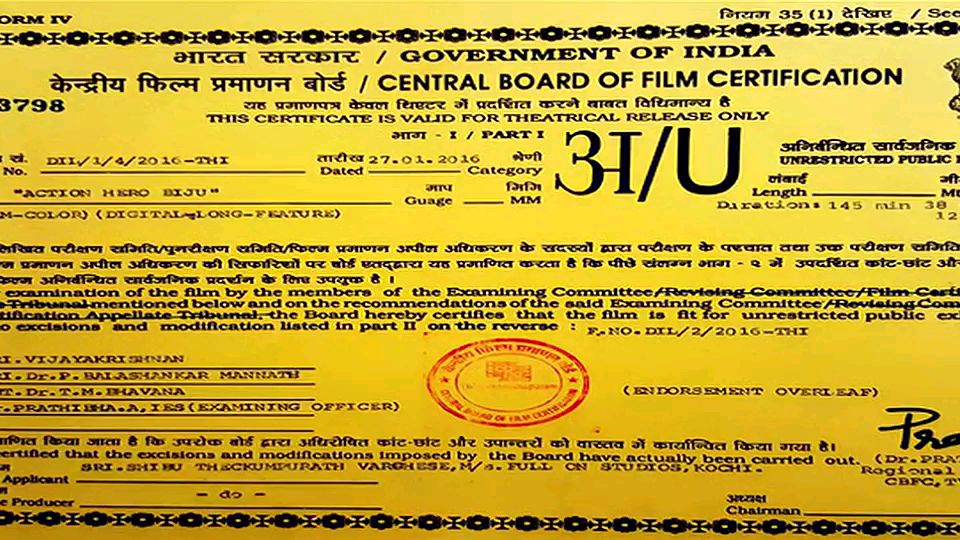 ORM IV नियम 35 (1) देखिए / Sec
भारत सरकार / GOVERNMENT OF INDIA
केन्द्रीय फिल्म प्रमाणन बोर्ड / CENTRAL BOARD OF FILM CERTIFICATION
3798 यह प्रमाणपत्र केवल थिएटर में प्रदर्शित करने बाबत विधिमान्य है
THIS CERTIFICATE IS VALID FOR THEATRICAL RELEASE ONLY
भाग - I / PART I
अ/U
सं. DIL/1/4/2016-THI तारीख 27.01.2016 श्रेणी अनिर्बन्धित सार्वजनिक
No. Dated Category UNRESTRICTED PUBLIC
"ACTION HERO BIJU" माप मिमि लंबाई मी
Guage MM Length Mt
M-COLOR) (DIGITAL-LONG-FEATURE) Duration: 145 min 38
12
लिखित परीक्षण समिति/पुनरीक्षण समिति/फिल्म प्रमाणन अपील अधिकरण के सदस्यों द्वारा परीक्षण के पश्चात तथा उक्त परीक्षण समिति
म प्रमाणन अपील अधिकरण की सिफारिशों पर बोर्ड एतद्द्वारा यह प्रमाणित करता है कि पीछे संलग्न भाग - २ में उपदर्शित कांट-छांट और
फिल्म अनिर्बन्धित सार्वजनिक प्रदर्शन के लिए उपयुक्त है ।
examination of the film by the members of the Examining Committee/Revising Committee/Film Certi
Tribunal mentioned below and on the recommendations of the said Examining Committee/Revising Com
tification Appellate Tribunal, the Board hereby certifies that the film is fit for unrestricted public ex
o excisions and modification listed in part II on the reverse : F.NO.DIL/2/2016-THI
RI.VIJAYAKRISHNAN
I.Dr.P.BALASHANKAR MANNATH
T.Dr.T.M.BHAVANA (ENDORSEMENT OVERLEAF)
.PRATHIBHA.A,IES(EXAMINING OFFICER)
केन्द्रीय फिल्म प्रमाणन बोर्ड
CENTRAL BOARD OF FILM CERTIFICATION
माणित किया जाता है कि उपरोक्त बोर्ड द्वारा अधिरोपित कांट-छांट और उपान्तरों को वास्तव में कार्यान्वित किया गया है।
ertified that the excisions and modifications imposed by the Board have actually been carried out. (Dr.PRAT
SRI.SHIBU THECKUMPURATH VARGHESE,M/s.FULL ON STUDIOS,KOCHI. Regional
Applicant CBFC,T
- do - अध्यक्ष
e Producer Chairman